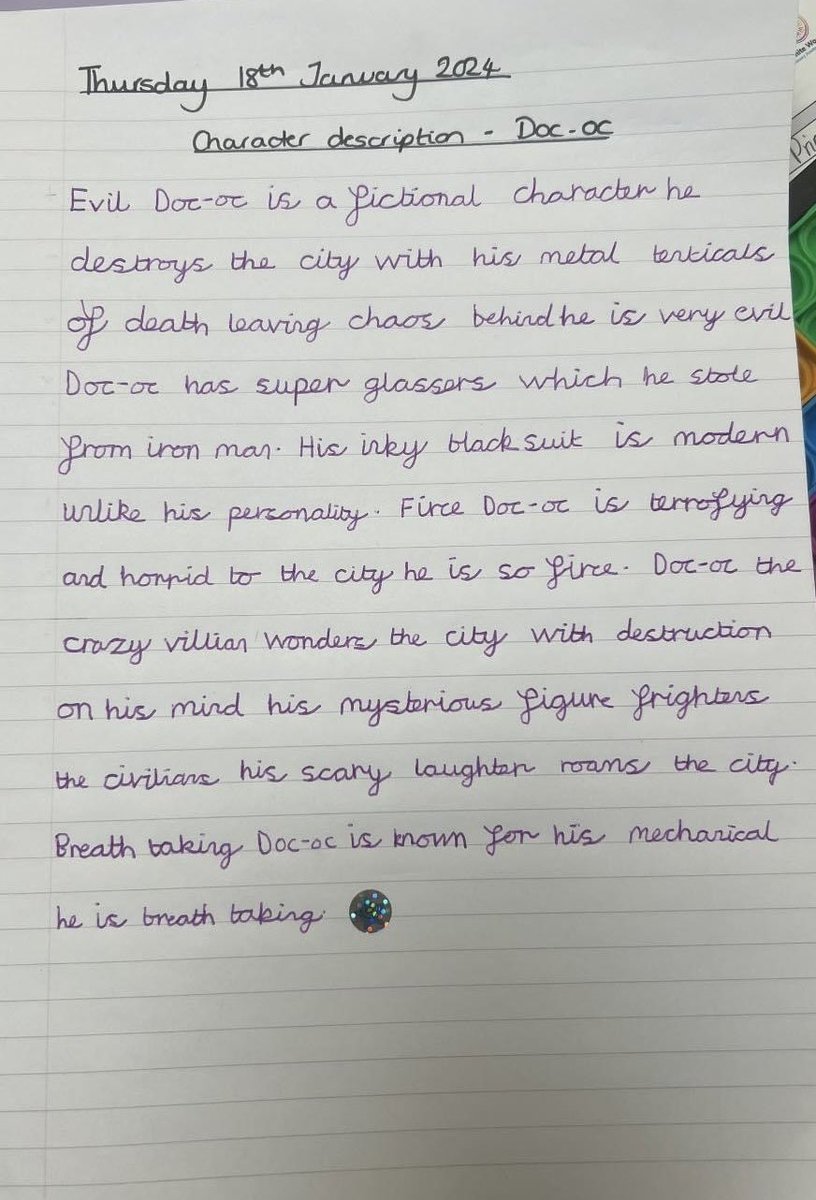 Thursday 18th January 2024
Character description - Doc-oc
Evil Doc-oc is a fictional character he
destroys the city with his metal tenticals
of death leaving chaos behind he is very evil
Doc-oc has super glassers which he stole
from iron man. His inky black suit is modern
unlike his personality. Firce Doc-oc is terrofying
and horrid to the city he is so firce. Doc-oc the
crazy villian wonders the city with destruction
on his mind his mysterious figure frightens
the civilians his scary laughter roams the city.
Breath taking Doc-oc is known for his mechanical
he is breath taking.